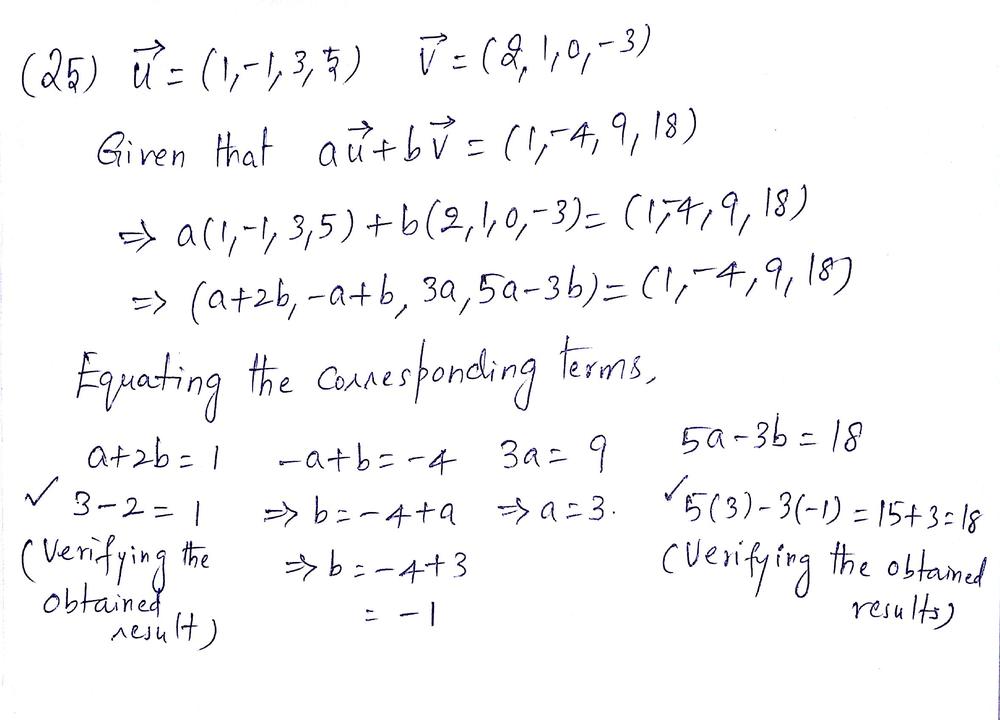 (25) u⃗ = (1,-1,3,5) v⃗ = (2,1,0,-3)
Given that au⃗+bv⃗ = (1,-4,9,18)
⇒ a(1,-1,3,5)+b(2,1,0,-3)= (1,-4,9,18)
⇒ (a+2b,-a+b, 3a,5a-3b)= (1,-4,9,18)
Equating the corresponding terms,
a+2b = 1 -a+b=-4 3a= 9 5a-3b = 18
✓ 3-2 = 1 ⇒ b=-4+a ⇒ a=3. ✓5(3)-3(-1) =15+3=18
(Verifying the ⇒ b=-4+3 (Verifying the obtained
obtained = -1 results)
result)